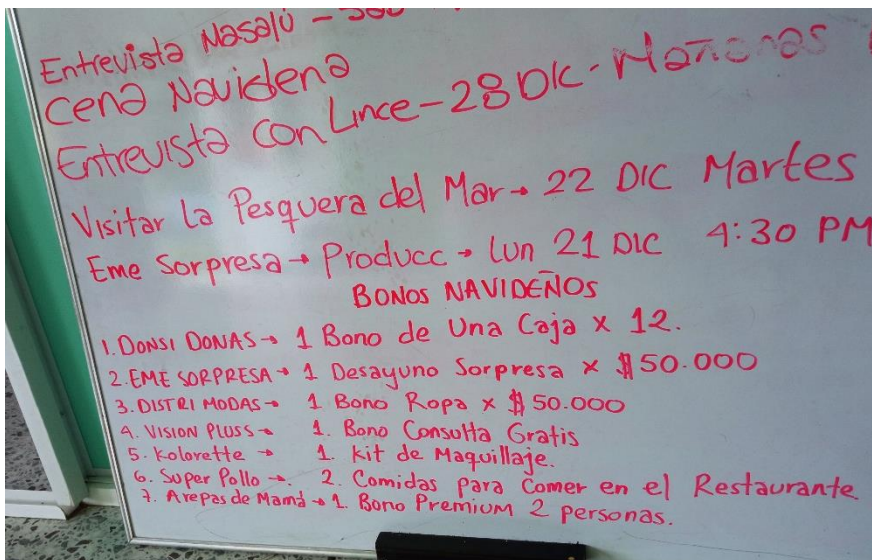 Entrevista Nasalú -
Cena Navideña
Entrevista con Lince - 28 DIC - Mañanas
Visitar La Pesquera del Mar → 22 DIC Martes
Eme Sorpresa → Producc → Lun 21 DIC 4:30 PM
BONOS NAVIDEÑOS
1. DONSI DONAS → 1 Bono de Una Caja x 12.
2. EME SORPRESA → 1 Desayuno Sorpresa x $50.000
3. DISTRI MODAS → 1 Bono Ropa x $50.000
4. VISION PLUSS → 1. Bono Consulta Gratis
5. Kolorette → 1. Kit de Maquillaje.
6. Super Pollo →. 2. Comidas para Comer en el Restaurante
7. Arepas de Mamá → 1. Bono Premium 2 personas.